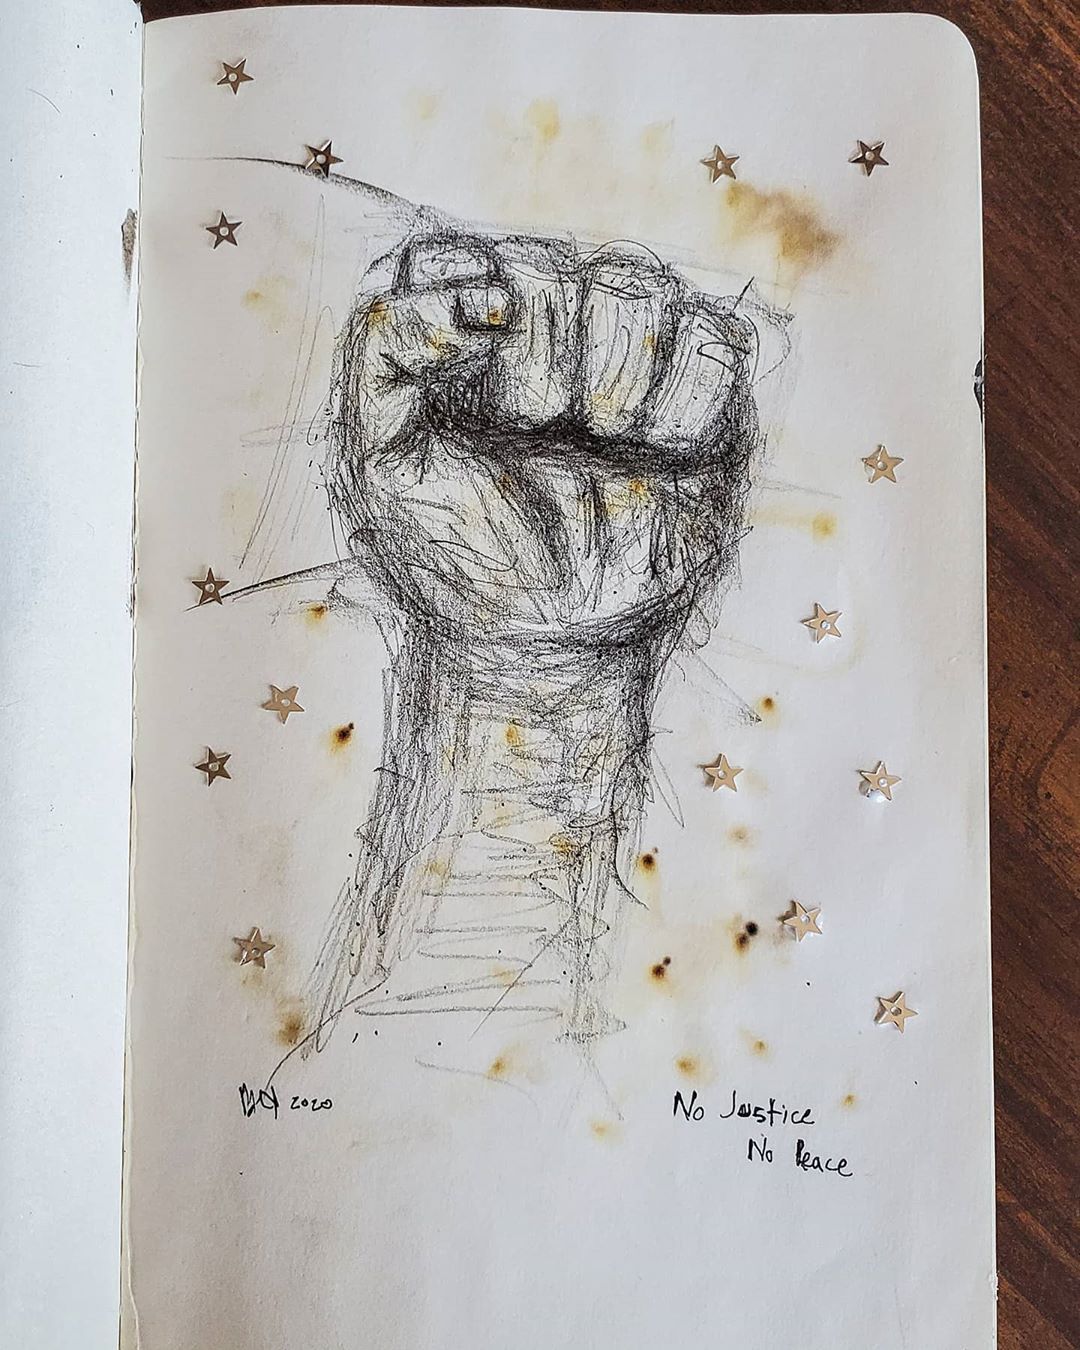 2020
No Justice
No Peace